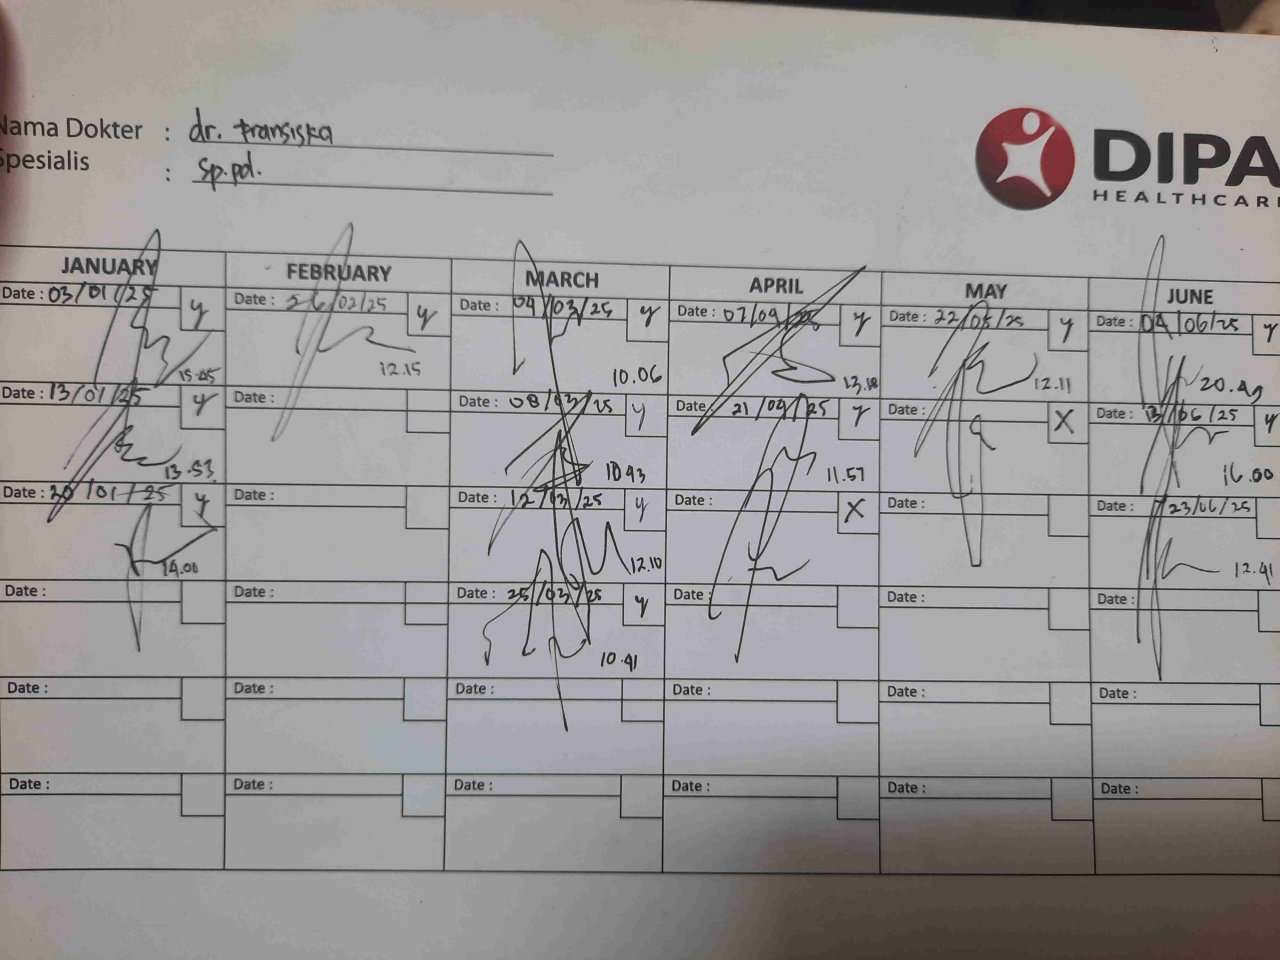 Nama Dokter : dr. Fransiska
Spesialis : Sp.pd.
DIPA
HEALTHCARE
JANUARY FEBRUARY MARCH APRIL MAY JUNE
Date : 03/01/25 y Date : 26/02/25 y Date : 04/03/25 y Date : 07/04/25 y Date : 22/05/25 y Date : 04/06/25 y
15.05 12.15 10.06 13.18 12.11 20.49
Date : 13/01/25 y Date : Date : 08/03/25 y Date : 21/04/25 y Date : X Date : 13/06/25 y
13.53 10.43 11.57 16.00
Date : 20/01/25 y Date : Date : 12/03/25 y Date : X Date : Date : 23/06/25
14.00 12.10 12.41
Date : Date : Date : 25/03/25 y Date : Date : Date :
10.41
Date : Date : Date : Date : Date : Date :
Date : Date : Date : Date : Date : Date :